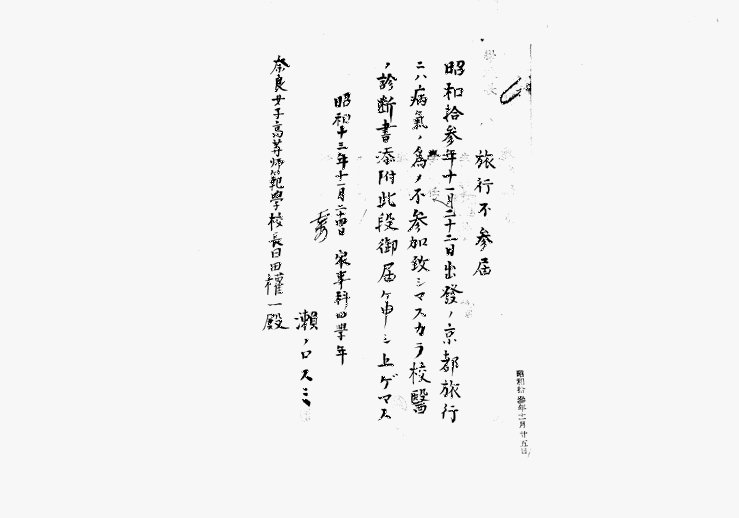 旅行不参届
昭和拾参年十一月二十二日出發ノ京都旅行
ニハ病氣ノ為メ不参加致シマスカラ校醫
ノ診断書添附此段御届ケ申シ上ゲマス
昭和十三年十一月二十四日 家事科四學年
瀬ノ口スミ
奈良女子高等師範學校長日田權一殿
昭和拾参年十一月廿五日